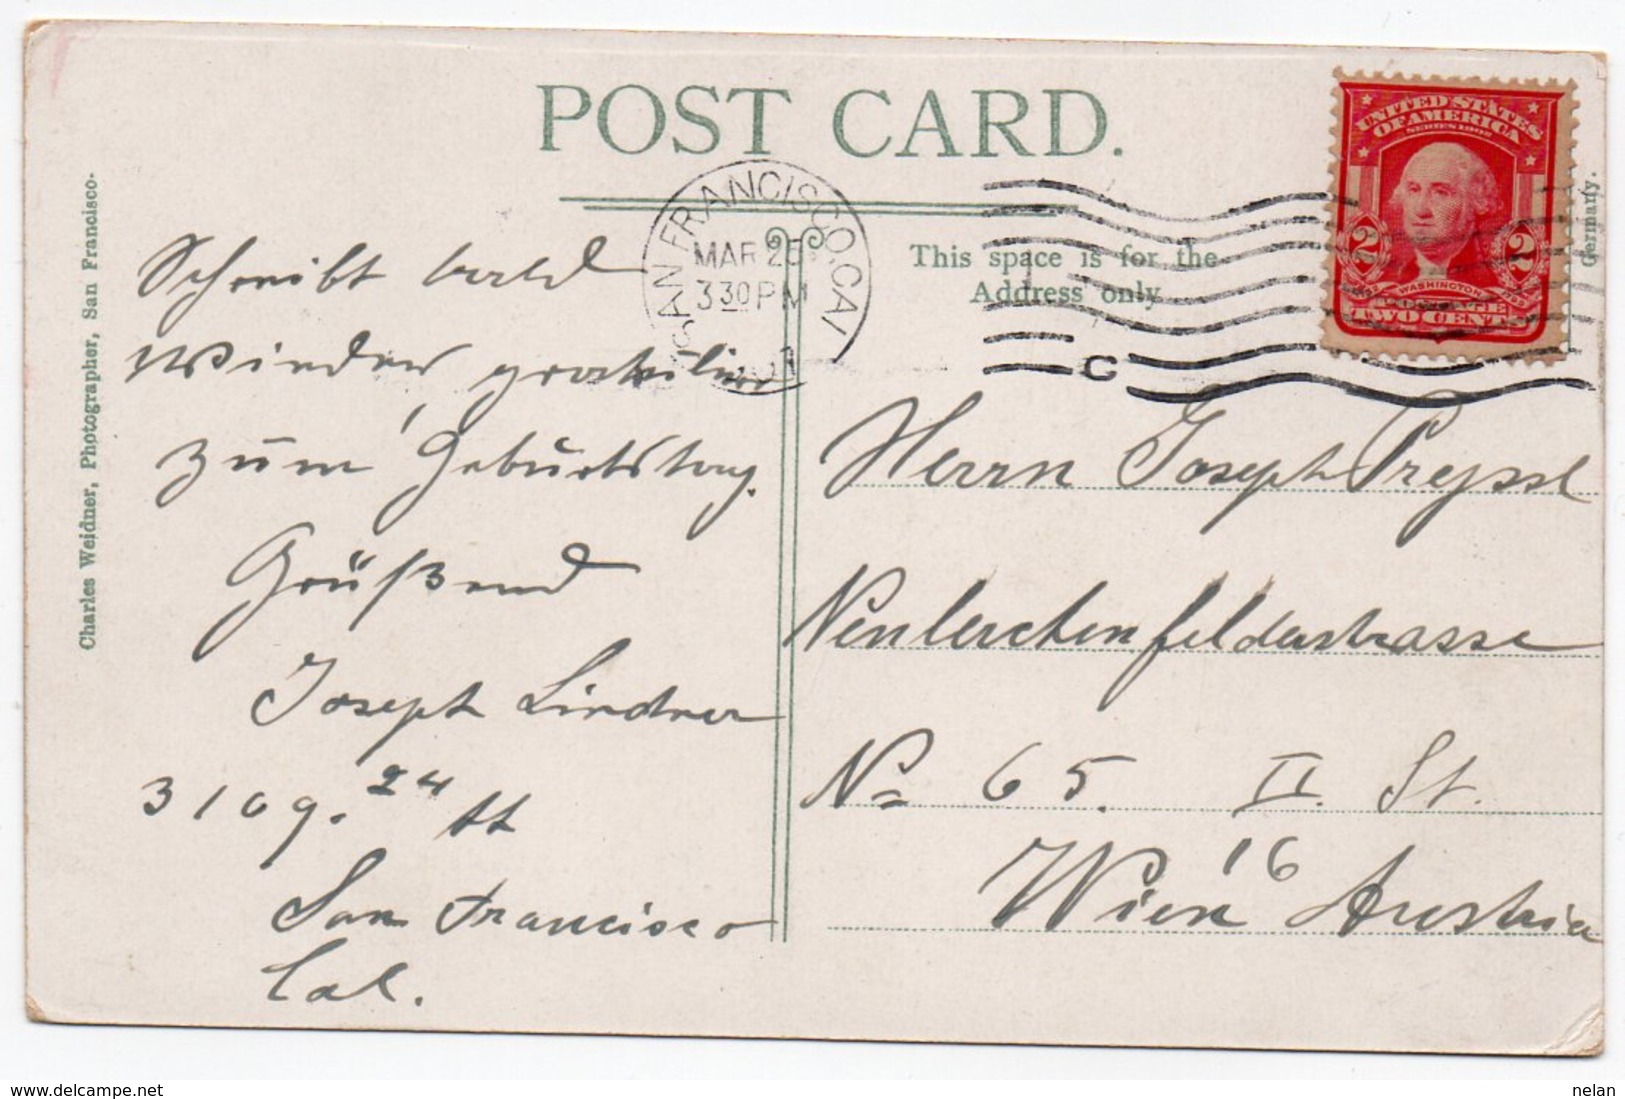 POST CARD.
SAN FRANCISCO, CAL
MAR 25
3 30 PM
C
UNITED STATES
OF AMERICA
SERIES 1902
2 2
WASHINGTON
POSTAGE
TWO CENTS
This space is for the
Address only
Germany.
Charles Weidner, Photographer, San Francisco.
Schreibt bald
wieder, gratulire
zum Geburtstag.
Grüßend
Joseph Lindner
3109. 24 th
San Francisco
Cal.
Herrn Joseph Preyssl
Neulerchenfelderstrasse
No 65. II. St.
Wien 16 Austria
nelan